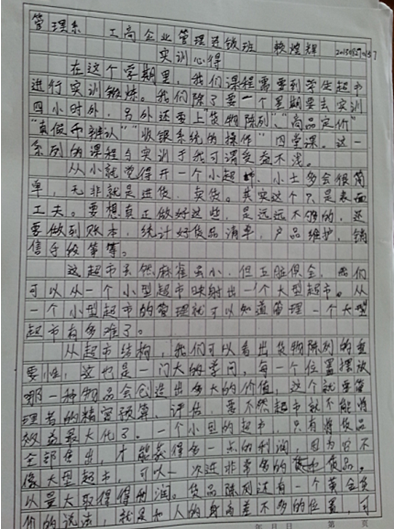 管理系 工商企业管理连锁班
实训心得
在这个学期里，我们课程需要到学生超市
进行实训锻炼。我们除了要一个星期要去实训
四小时外，另外还要上“货物陈列”、“商品定价”
“真假币辨认”“收银系统的操作”四堂课。这一
系列的课程与实训于我可谓受益不浅。
从小就觉得开一个小超市，小士多会很简
单，无非就是进货，卖货。其实这个只是表面
工夫。要想真正做好这些，是远远不够的，还
要做到账本，统计好货品清单，产品维护，销
售手段等等。
这超市虽然麻雀虽小，但五脏俱全，我们
可以从一个小型超市映射出一个大型超市。从
一个小型超市的管理就可以知道管理一个大型
超市有多难了。
从超市结构，我们可以看出货物陈列的重
要性，这也是一门大的学问，每一个位置摆放
哪一种物品会创造出多大的价值，这个就要管
理者的精密预算，评估，要不然超市就不能将
效益最大化了。一个小型的超市，只有将货品
全部卖出，才能获得多一点的利润，因为它不
像大型超市，可以一次进非常多的货品，
以量大取得利润。货品陈列还有一个黄金货
价的说法，就是和人的身高差不多的位置，可